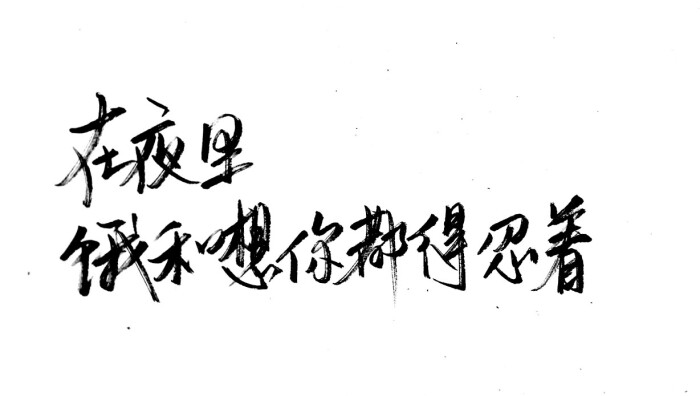 在夜里
饿和想你都得忍着